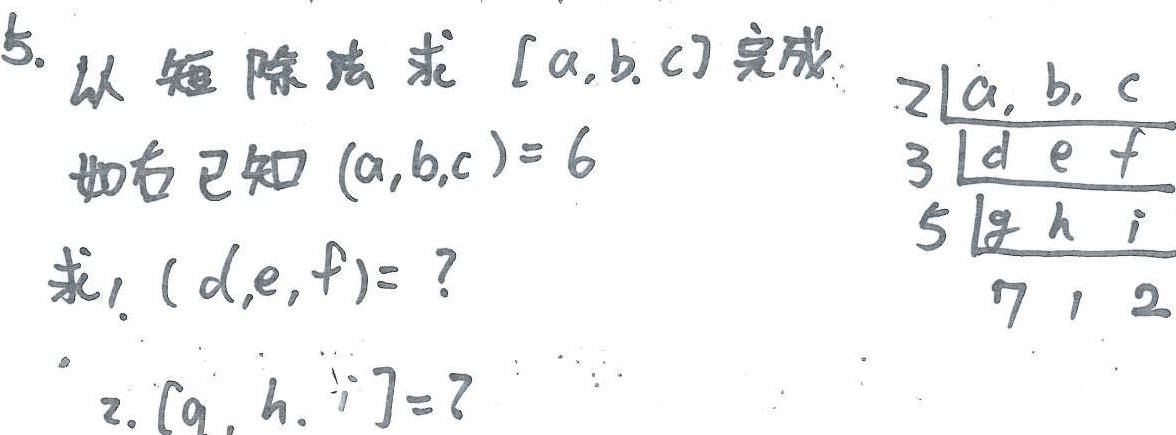 5. 以短除法求 [a,b,c] 完成
如右已知 (a,b,c)=6
求1. (d,e,f)=?
2. [g,h,i]=?
2|a, b, c
3|d e f
5|g h i
7 1 2